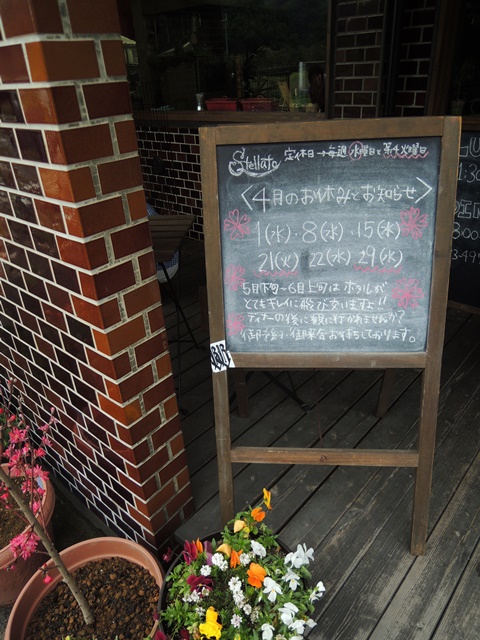 Stellato 定休日→毎週水曜日と第4火曜日
<4月のお休みとお知らせ>
1(水)・8(水)・15(水)
21(火) 22(水) 29(水)
5月下旬〜6月上旬は ホタルが
とてもキレイに飛び交いますヨ!!
ディナーの後に観に行かれませんか?
御予約・御来店お待ちしております。